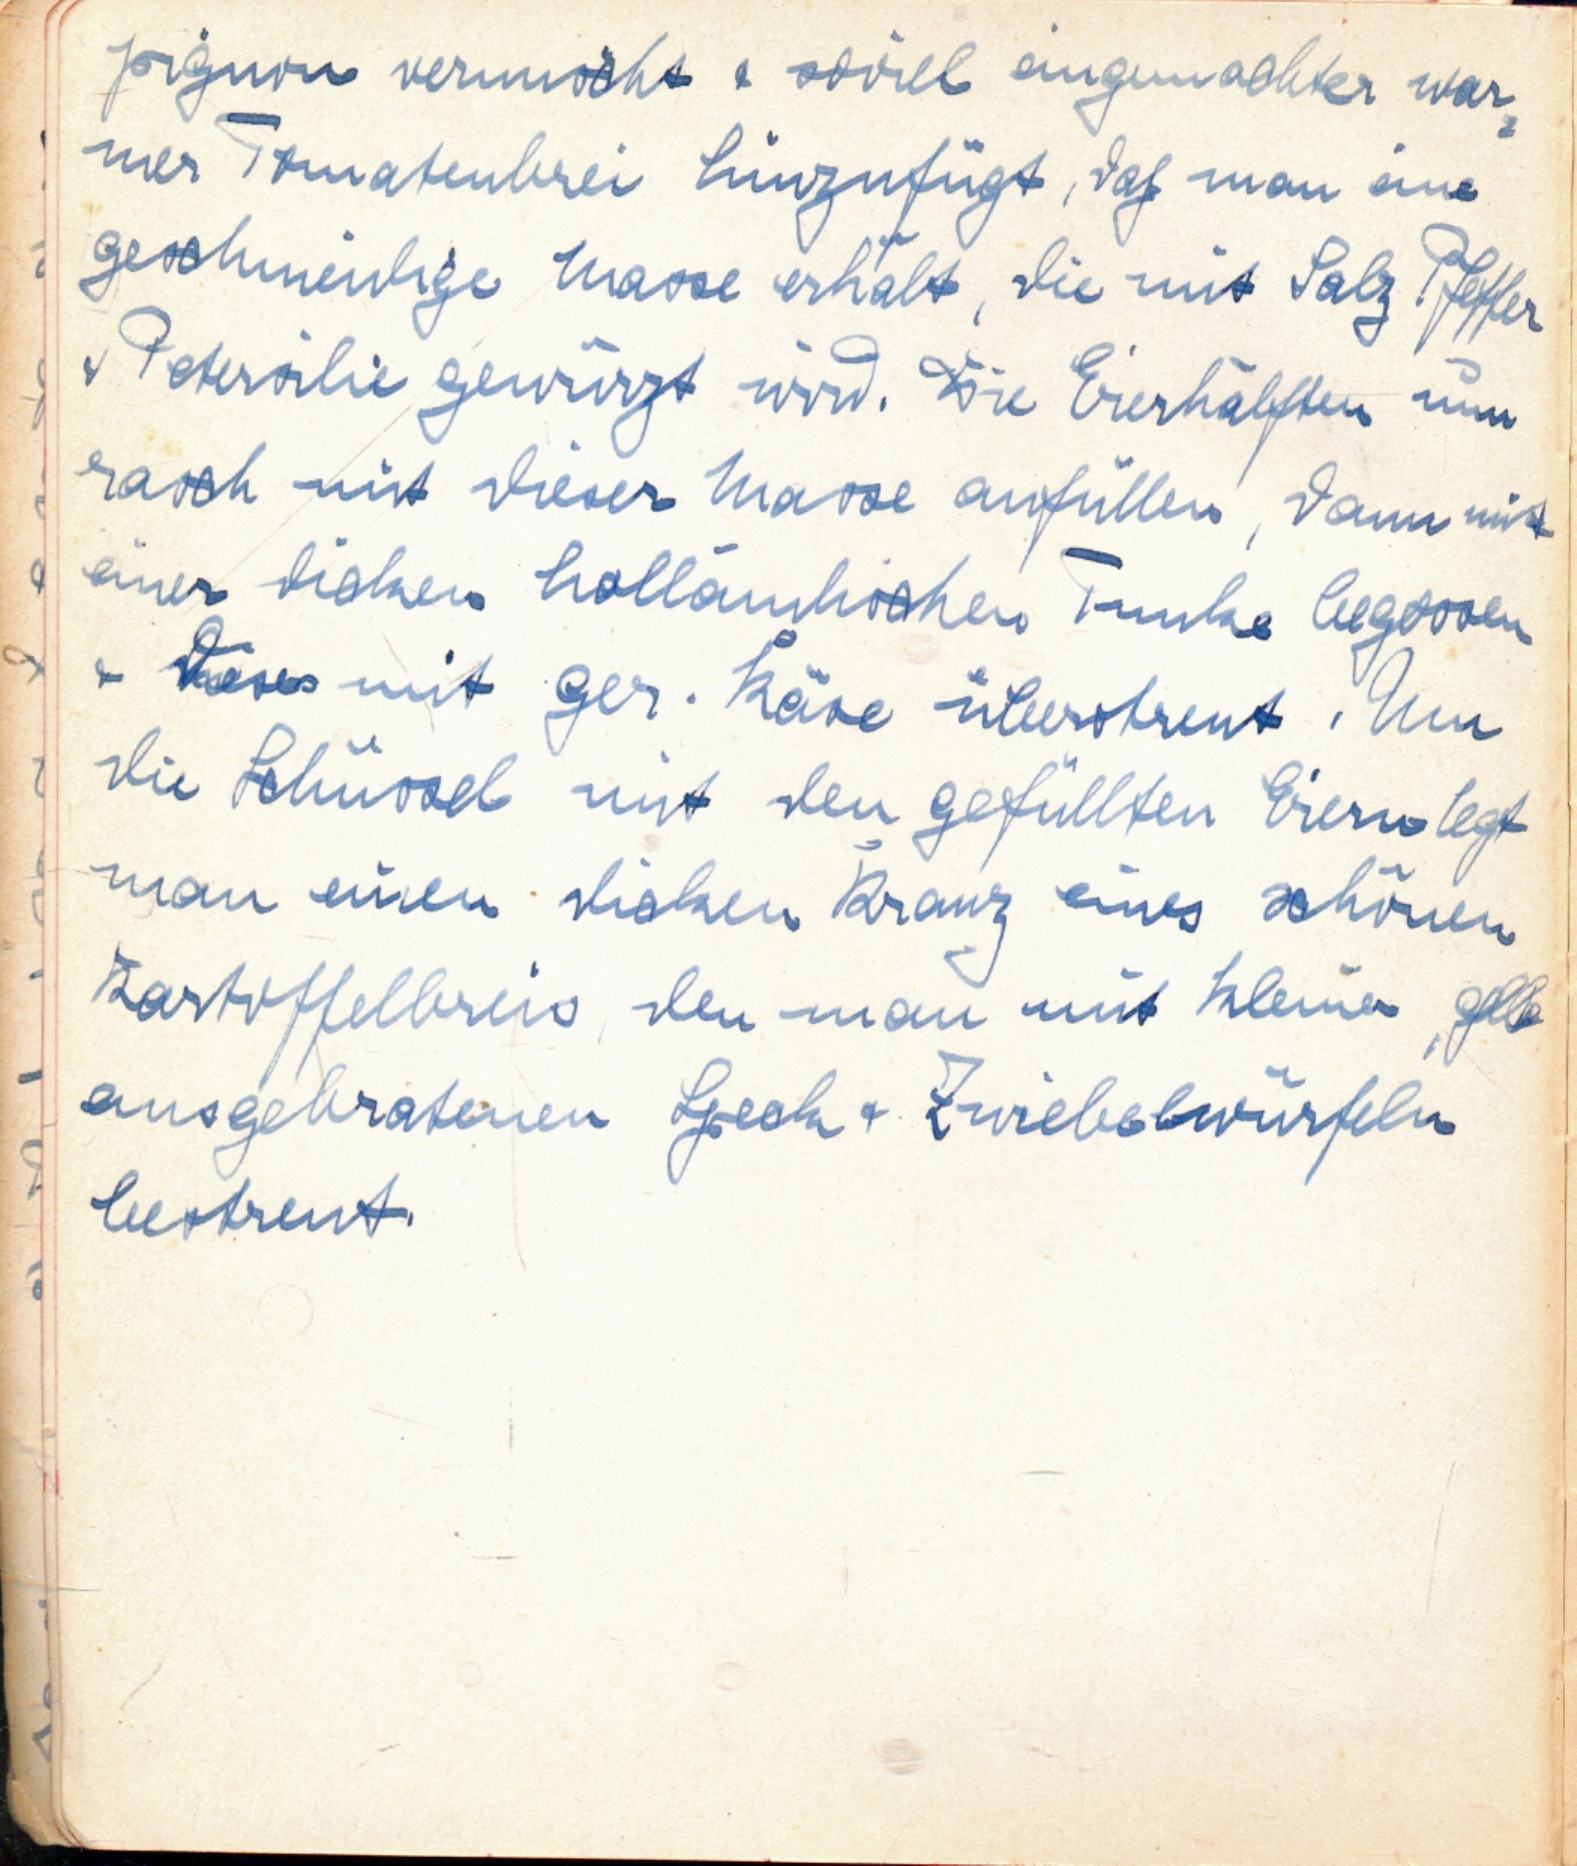 pignon vermischt & soviel eingemachter war-
mer Tomatenbrei hinzufügt, daß man eine
geschmeidige Masse erhält, die mit Salz Pfeffer
& Petersilie gewürzt wird. Die Eierhälften nun
rasch mit dieser Masse anfüllen, dann mit
einer dicken holländischen Tunke begossen
& dieses mit ger. Käse überstreut. Um
die Schüssel mit den gefüllten Eiern legt
man einen dicken Kranz eines schönen
Kartoffelbreis, den man mit kleinen, gelb
ausgebratenen Speck & Zwiebelwürfeln
bestreut.